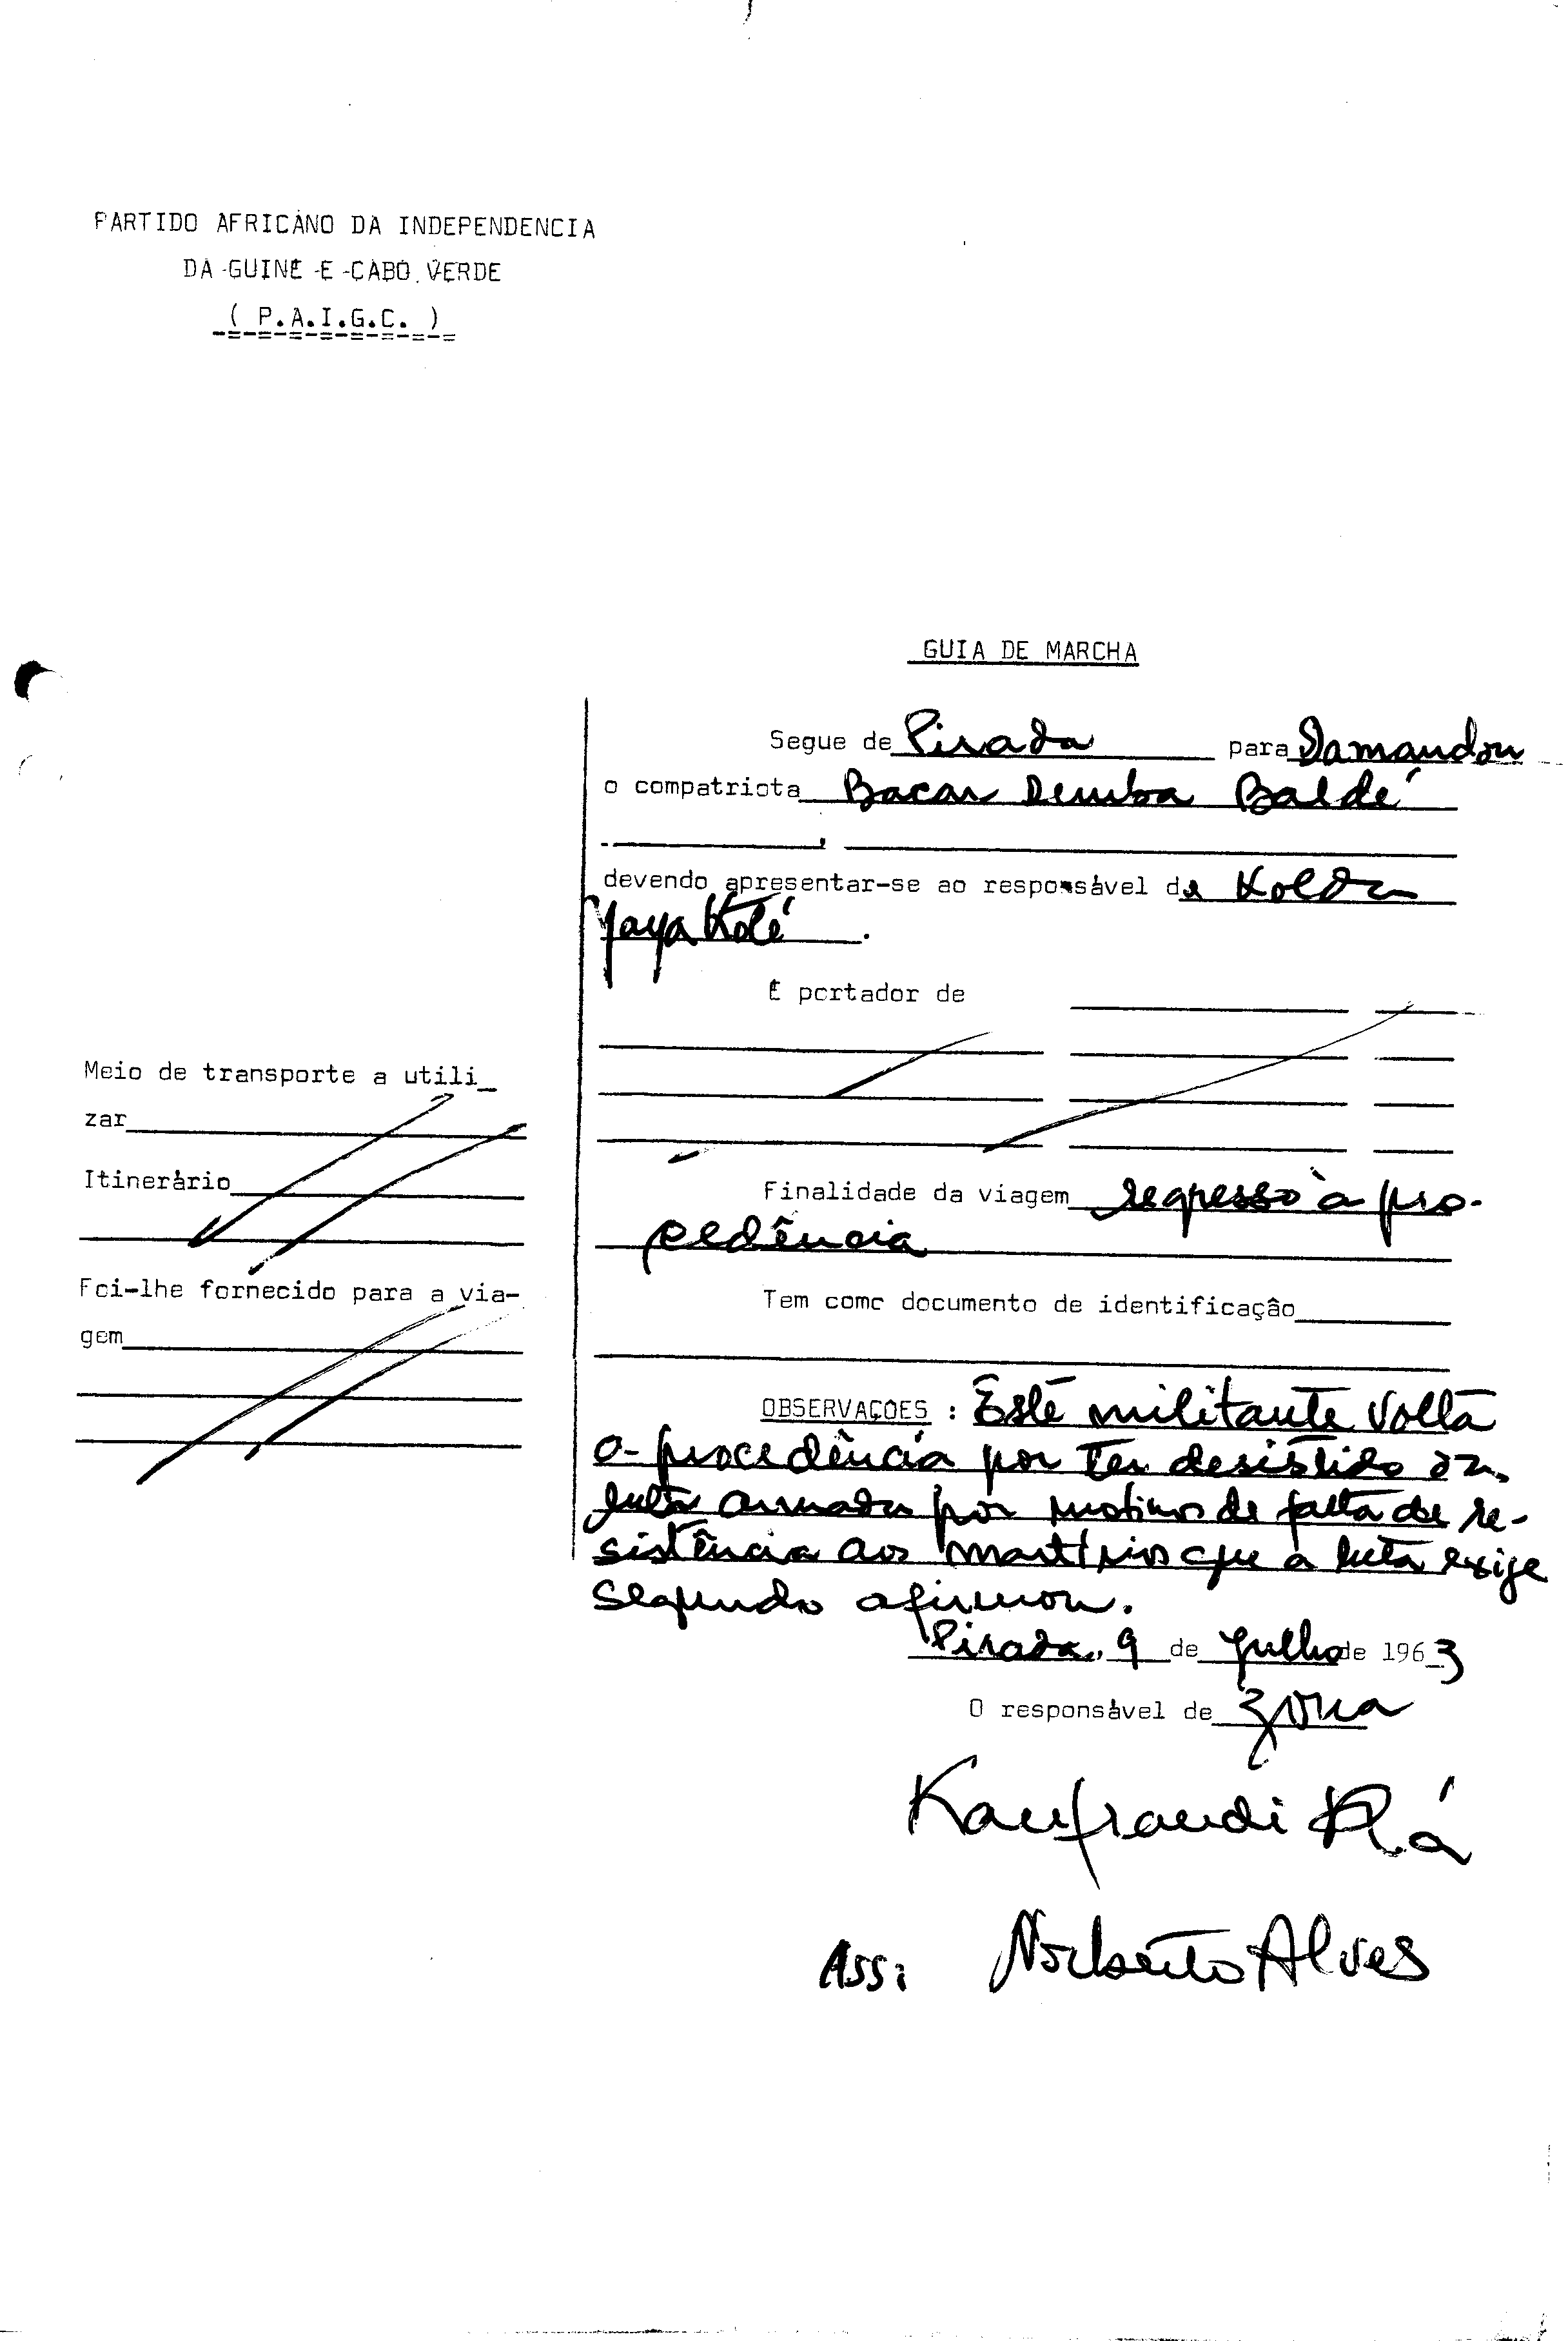 PARTIDO AFRICANO DA INDEPENDENCIA
DA GUINÉ E CABO VERDE
( P.A.I.G.C. )
GUIA DE MARCHA
Segue de Pirada para Damandou
o compatriota Bacar Demba Baldé
devendo apresentar-se ao responsável de Kolda
Yaya Koté.
É portador de
Meio de transporte a utili_
zar
Itinerário
Finalidade da viagem regresso à pro-
cedência
Foi-lhe fornecido para a via-
gem
Tem como documento de identificação
OBSERVAÇOES : Este militante volta
a procedência por ter desistido da
luta armada por motivos de falta de re-
sistência aos martírios que a luta exige
segundo afirmou.
Pirada, 9 de Julho de 1963
O responsável de zona
Kaufrandi Ká
Ass: Norberto Alves